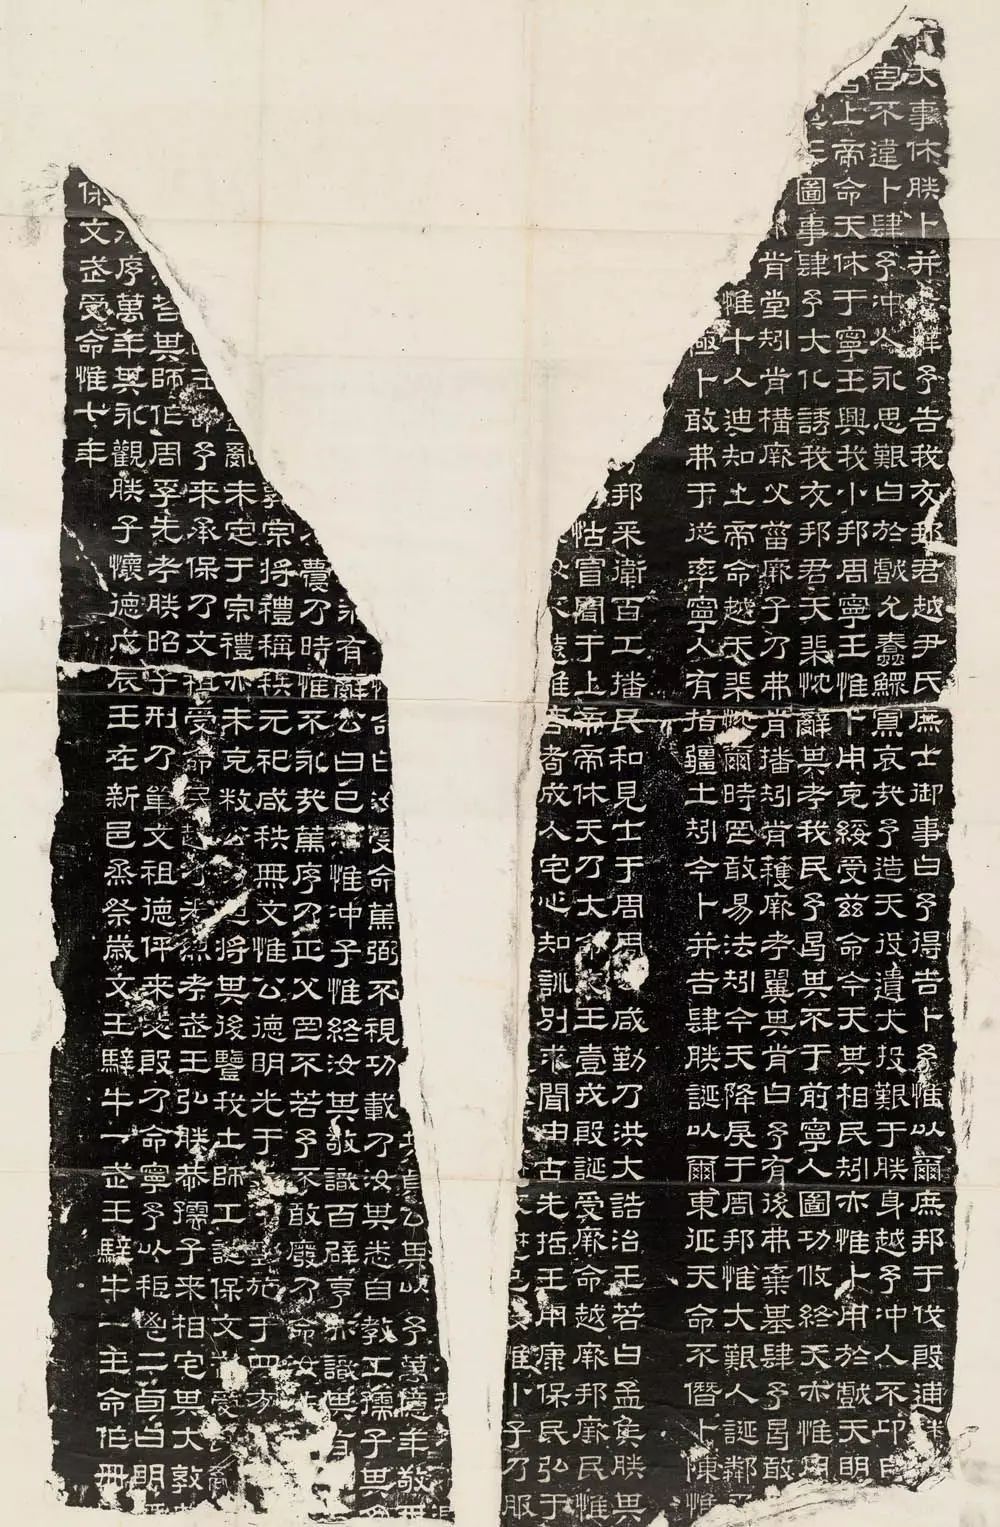 大事休朕卜并吉肆予告我友邦君越尹氏庶士御事曰予得吉卜予惟以爾庶邦于伐殷逋
害不違卜肆予沖人永思艱曰於戲允蠢鰥寡哀哉予造天役遺大投艱于朕身越予沖人不卬自
上帝命天休于寧王興我小邦周寧王惟卜用克綏受茲命今天其相民矧亦惟卜用於戲天明
王圖事肆予大化誘我友邦君天棐忱辭其考我民予曷其不于前寧人圖功攸終天亦惟用
肯堂矧肯構厥父菑厥子乃弗肯播矧肯穫厥考翼其肯曰予有後弗棄基肆予曷敢
惟十人迪知上帝命越天棐忱爾時罔敢易法矧今天降戾于周邦惟大艱人誕鄰
極卜敢弗于從率寧人有指疆土矧今卜并吉肆朕誕以爾東征天命不僭卜陳惟
邦采衛百工播民和見士于周周公咸勤乃洪大誥治王若曰孟侯朕其
怙冒聞于上帝帝休天乃大命文王壹戎殷誕受厥命越厥邦厥民惟
遠惟耇成人宅心知訓別求聞由古先悊王用康保民弘于
惟小子乃服
公其以予萬億年敬天
受命篤弼丕視功載乃汝其悉自教工孺子其
有辭公曰已汝惟沖子惟終汝其敬識百辟享亦識其有
乃時惟不永哉篤序乃正父罔不若予不敢廢乃命汝往
宗將禮稱秩元祀咸秩無文惟公德明光于施于四方
亂未定于宗禮亦未克敉公迪將其後監我士師工誕保文武受
王命予來承保乃文祖受命民越乃光烈考武王弘朕恭孺子來相宅其大敦
者其師作周孚先考朕昭子刑乃單文祖德伻來毖殷乃命寧予以秬鬯二卣曰明
序萬年其永觀朕子懷德戊辰王在新邑烝祭歲文王騂牛一武王騂牛一王命作冊
保文武受命惟七年